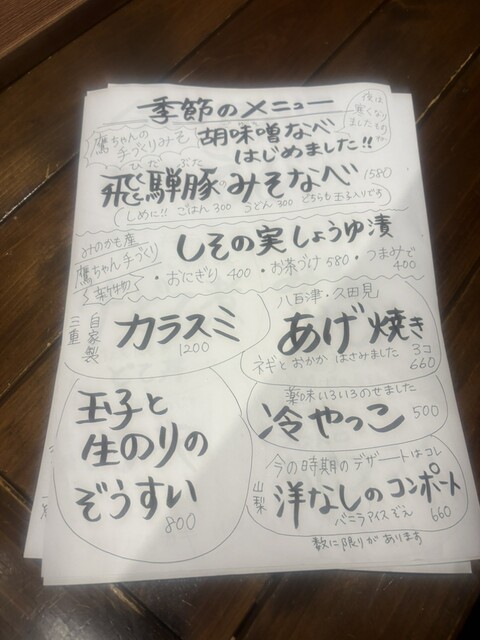 季節のメニュー
夜は
寒くなり
ました
鷹ちゃんの
手づくりみそ
胡味噌なべ
はじめました!!
ひだ ぶた
飛騨豚のみそなべ 1580
しめに!! ごはん 300 うどん 300 どちらも玉子入りです
みのかも産
鷹ちゃん手づくり
しその実しょうゆ漬
・おにぎり 400 ・お茶づけ 580 ・つまみで 400
三重
自家製
カラスミ
1200
八百津・久田見
あげ焼き
ネギとおかかはさみました 3コ
660
玉子と
生のりの
ぞうすい
800
薬味いろいろのせました
冷やっこ 500
今の時期のデザートはコレ
山梨
洋なしのコンポート
バニラアイスぞえ 660
数に限りがあります